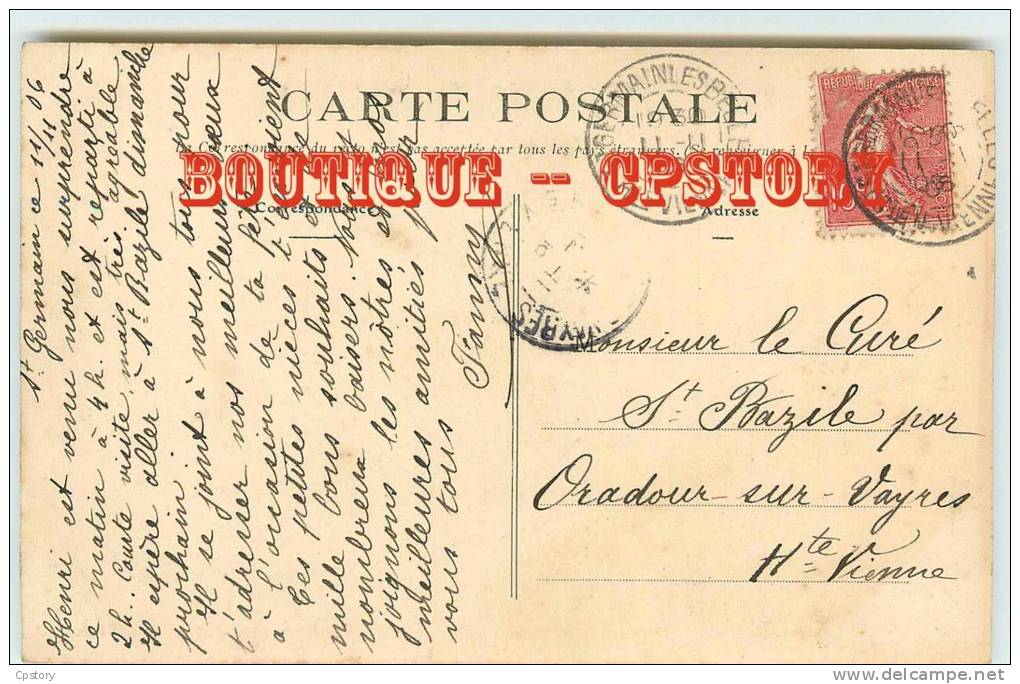 CARTE POSTALE
La Correspondance du recto n'est pas acceptée par tous les pays étrangers. (Se renseigner à la
BOUTIQUE -- CPSTORY
Correspondance
Adresse
RÉPUBLIQUE FRANÇAISE
ST GERMAIN LES BELLES
VIENNE
VAYRES
St Germain ce 11/11 06
Henri est venu nous surprendre
ce matin à 4h. et est reparti à
2h... Courte visite mais très agréable
Il espère aller à St Bazile dimanche
prochain
Il se joint à nous tous pour
t'adresser nos meilleurs vœux
à l'occasion de ta fête
Tes petites nièces t'envoient
bons souhaits et
mille baisers.
nombreux
joignons les nôtres
meilleures amitiés pour
vous tous
Fanny
Monsieur le Curé
St Bazile par
Oradour-sur-Vayres
Hte Vienne
Cpstory
delcampe.net